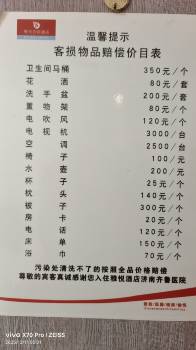 温馨提示
客损物品赔偿价目表
卫生间马桶 350元/个
花洒 80元/套
洗手盆 200元/套
置物架 80元/个
电吹风 120元/个
电视机 3000/台
空调 2500/台
椅子 100/元
水壶 200/元
杯子 25元/个
枕头 140元/个
被子 300元/个
房卡 20元/个
电话 120元/个
床单 150元/个
浴巾 70元/个
污染处清洗不了的按照全品价格赔偿
尊敬的宾客真诚感谢您入住雅悦酒店济南齐鲁医院
vivo X70 Pro+ | ZEISS